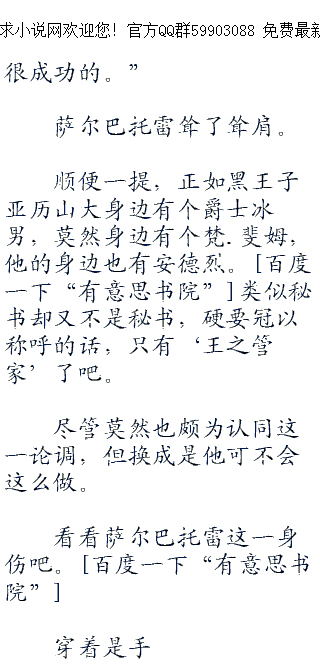 求小说网欢迎您! 官方QQ群59903088 免费最新
很成功的。”
萨尔巴托雷耸了耸肩。
顺便一提，正如黑王子
亚历山大身边有个爵士冰
男，莫然身边有个梵.斐姆，
他的身边也有安德烈。[百度
一下“有意思书院”]类似秘
书却又不是秘书，硬要冠以
称呼的话，只有‘王之管
家’了吧。
尽管莫然也颇为认同这
一论调，但换成是他可不会
这么做。
看看萨尔巴托雷这一身
伤吧。[百度一下“有意思书
院”]
穿着是手